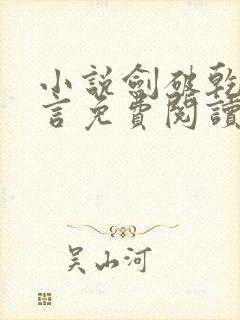 小說劍破乾
言免費閱讀
吴山河